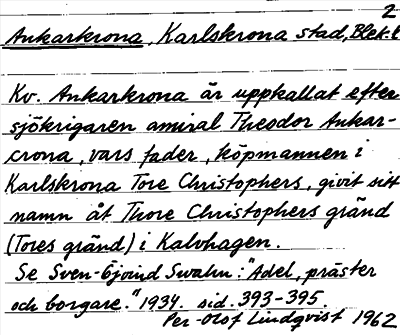 2
Ankarkrona, Karlskrona stad, Blek.l
Kv. Ankarkrona är uppkallat efter
sjökrigaren amiral Theodor Ankar-
crona, vars fader, köpmannen i
Karlskrona Tore Christophers, givit sitt
namn åt Thore Christophers gränd
(Tores gränd) i Kalvhagen.
Se Sven-Öjvind Swahn: "Adel, präster
och borgare." 1934. sid. 393-395.
Per-Olof Lindqvist 1962